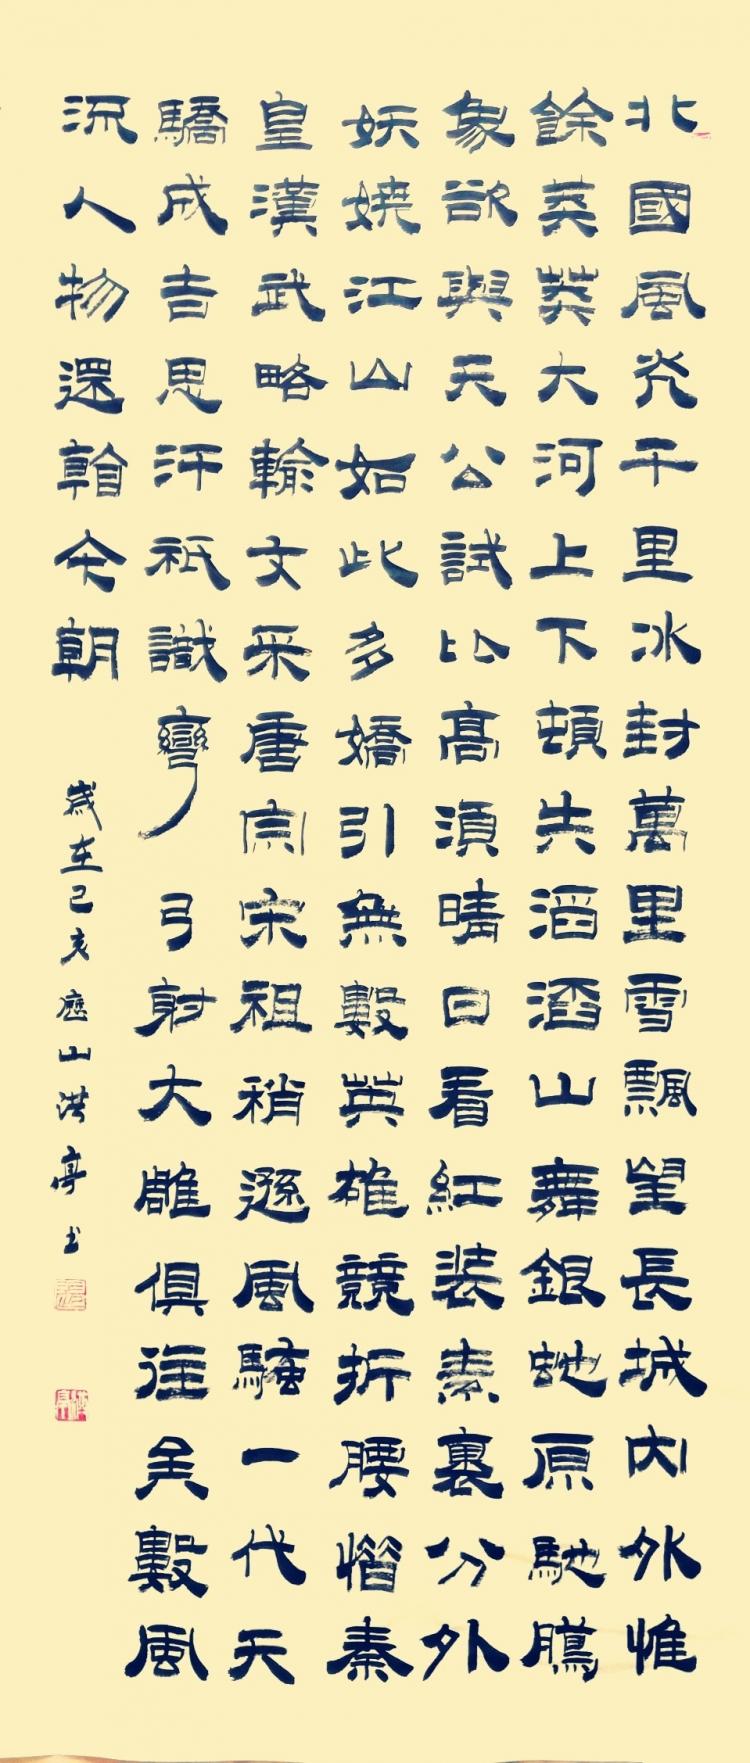 北國風光千里冰封萬里雪飄望長城内外惟
餘莽莽大河上下頓失滔滔山舞銀蛇原馳臘
象欲與天公試比高須晴日看紅装素裹分外
妖嬈江山如此多嬌引無數英雄競折腰惜秦
皇漢武略輸文采唐宗宋祖稍遜風騷一代天
驕成吉思汗祇識彎弓射大雕俱往矣數風
流人物還看今朝
歲在己亥應山洪亭书